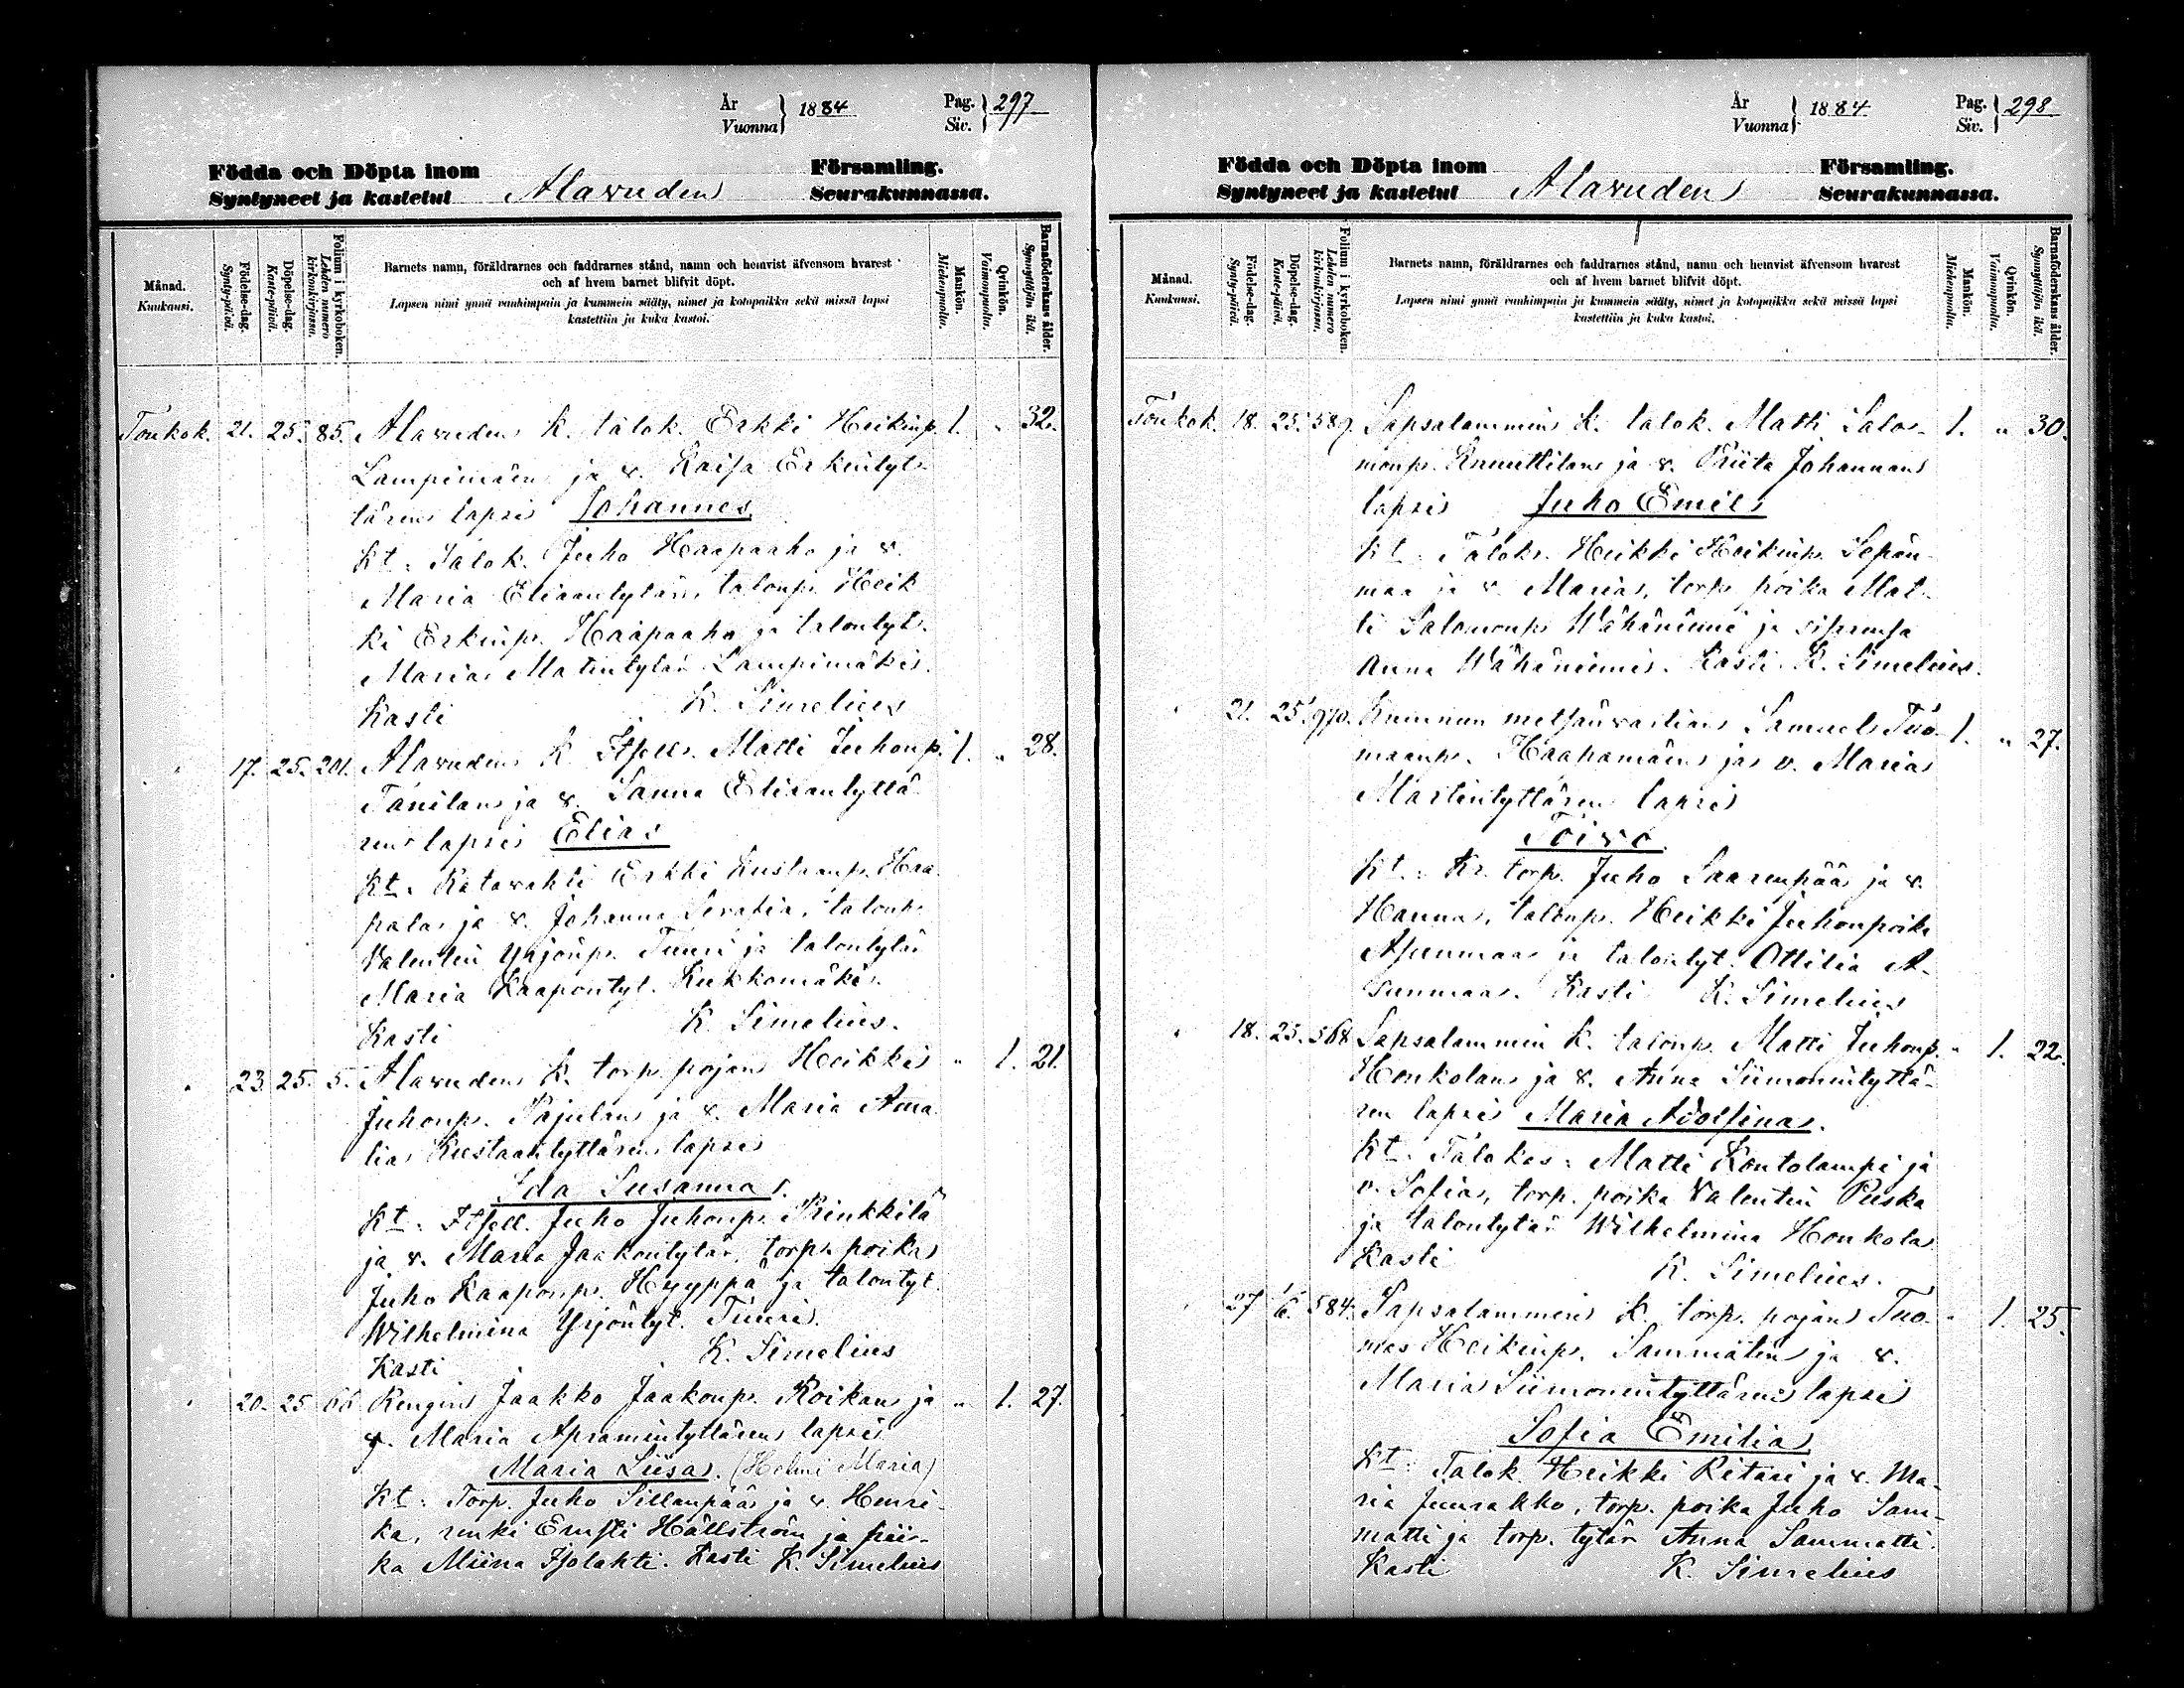 År
Vuonna } 1884
Pag.
Siv. } 297
Födda och Döpta inom Församling.
Syntyneet ja kastetut Alavuden Seurakunnassa.
Månad.
Kuukausi.
Födelse-dag.
Synty-päivä.
Döpelse-dag.
Kaste-päivä.
Folium i kyrkoboken.
Lehden numero kirkonkirjassa.
Barnets namn, föräldrarnes och faddrarnes stånd, namn och hemvist äfvensom hvarest
och af hvem barnet blifvit döpt.
Lapsen nimi ynnä vanhimpain ja kummein sääty, nimet ja kotopaikka sekä missä lapsi
kastettiin ja kuka kastoi.
Mankön.
Miehenpuolta.
Qvinkön.
Vaimonpuolta.
Barnaföderskans ålder.
Synnyttäjän ikä.
Toukok. 21. 25. 85. Alavuden K. talok. Erkki Heikinp. 1. " 32.
Lampimäen ja v. Kaisa Erkintyt-
tären lapsi Johannes
Kt: Talok. Juho Haapaaho ja v.
Maria Eliaantytär, talonp. Heik
ki Erkinp. Haapaaho ja talontyt.
Maria Matintytär Lampimäki.
Kasti K. Simelius
" 17. 25. 201. Alavuden K. Itsell. Matti Juhonp. 1. " 28.
Tanilan ja v. Sanna Eliaantyttä
ren lapsi Elias
Kt: Ratavahti Erkki Kustaanp. Haa
pala ja v. Johanna Serafia, talonp.
Valentin Yrjönp. Tuuri ja talontytär
Maria Kaapontyt. Kukkomäki.
Kasti K. Simelius.
" 23. 25. 5. Alavuden K. torp. pojan Heikki " 1. 21.
Juhonp. Pajulan ja v. Maria Ama
lia Kustaantyttären lapsi
Ida Susanna.
Kt: Itsell. Juho Juhonp. Rinkkilä
ja v. Maria Jaakontytär, torp. poika
Juho Kaaponp. Hyyppä ja talontyt.
Wilhelmina Yrjöntyt. Tuuri.
Kasti K. Simelius
" 20. 25. 66 Rengin Jaakko Jaakonp. Koikan ja " 1. 27.
v. Maria Apramintyttären lapsi
Maria Liisa. (Helmi Maria)
Kt: Torp. Juho Sillanpää ja v. Henri-
ka, renki Ernsti Hällström ja pii-
ka Miina Isolahti. Kasti K. Simelius
År
Vuonna } 1884
Pag.
Siv. } 298
Födda och Döpta inom Församling.
Syntyneet ja kastetut Alavuden Seurakunnassa.
Månad.
Kuukausi.
Födelse-dag.
Synty-päivä.
Döpelse-dag.
Kaste-päivä.
Folium i kyrkoboken.
Lehden numero kirkonkirjassa.
Barnets namn, föräldrarnes och faddrarnes stånd, namn och hemvist äfvensom hvarest
och af hvem barnet blifvit döpt.
Lapsen nimi ynnä vanhimpain ja kummein sääty, nimet ja kotopaikka sekä missä lapsi
kastettiin ja kuka kastoi.
Mankön.
Miehenpuolta.
Qvinkön.
Vaimonpuolta.
Barnaföderskans ålder.
Synnyttäjän ikä.
Toukok. 18. 25. 589. Sapsalammin K. talok. Matti Salo- 1. " 30.
monp. Knuuttilan ja v. Riita Johannan
lapsi Juho Emil
Kt: Talok. Heikki Heikinp. Sepän
maa ja v. Maria, torp. poika Mat-
ti Salomonp. Wähäniemi ja
Anna Wähäniemi. Kasti K. Simelius.
" 21. 25. 970. Kunnun metsänvartian Samuel Tuo- 1. " 27.
maanp. Haahamäen ja v. Maria
Martintyttären lapsi
Toivo.
Kt: Kr. torp. Juho Saarenpää ja v.
Hanna, talonp. Heikki Juhonpoika
Asunmaa ja talontyt. Ottilia A-
sunmaa. Kasti K. Simelius
" 18. 25. 568 Sapsalammin K. talonp. Matti Juhonp. " 1. 22.
Honkolan ja v. Anna Siimonintyttä-
ren lapsi Maria Adolfina.
Kt: Talokas: Matti Kontolampi ja
v. Sofia, torp. poika Valentin Puska
ja talontytär Wilhelmina Honkola
Kasti K. Simelius.
" 27 1/6. 584. Sapsalammin K. torp. pojan Tuo- " 1. 25.
mas Heikinp. Sammatin ja v.
Maria Siimonintyttären lapsi
Sofia Emilia
Kt: Talok. Heikki Ritari ja v. Ma-
ria Juurakko, torp. poika Juho Sam-
matti ja torp. tytär Anna Sammatti.
Kasti K. Simelius